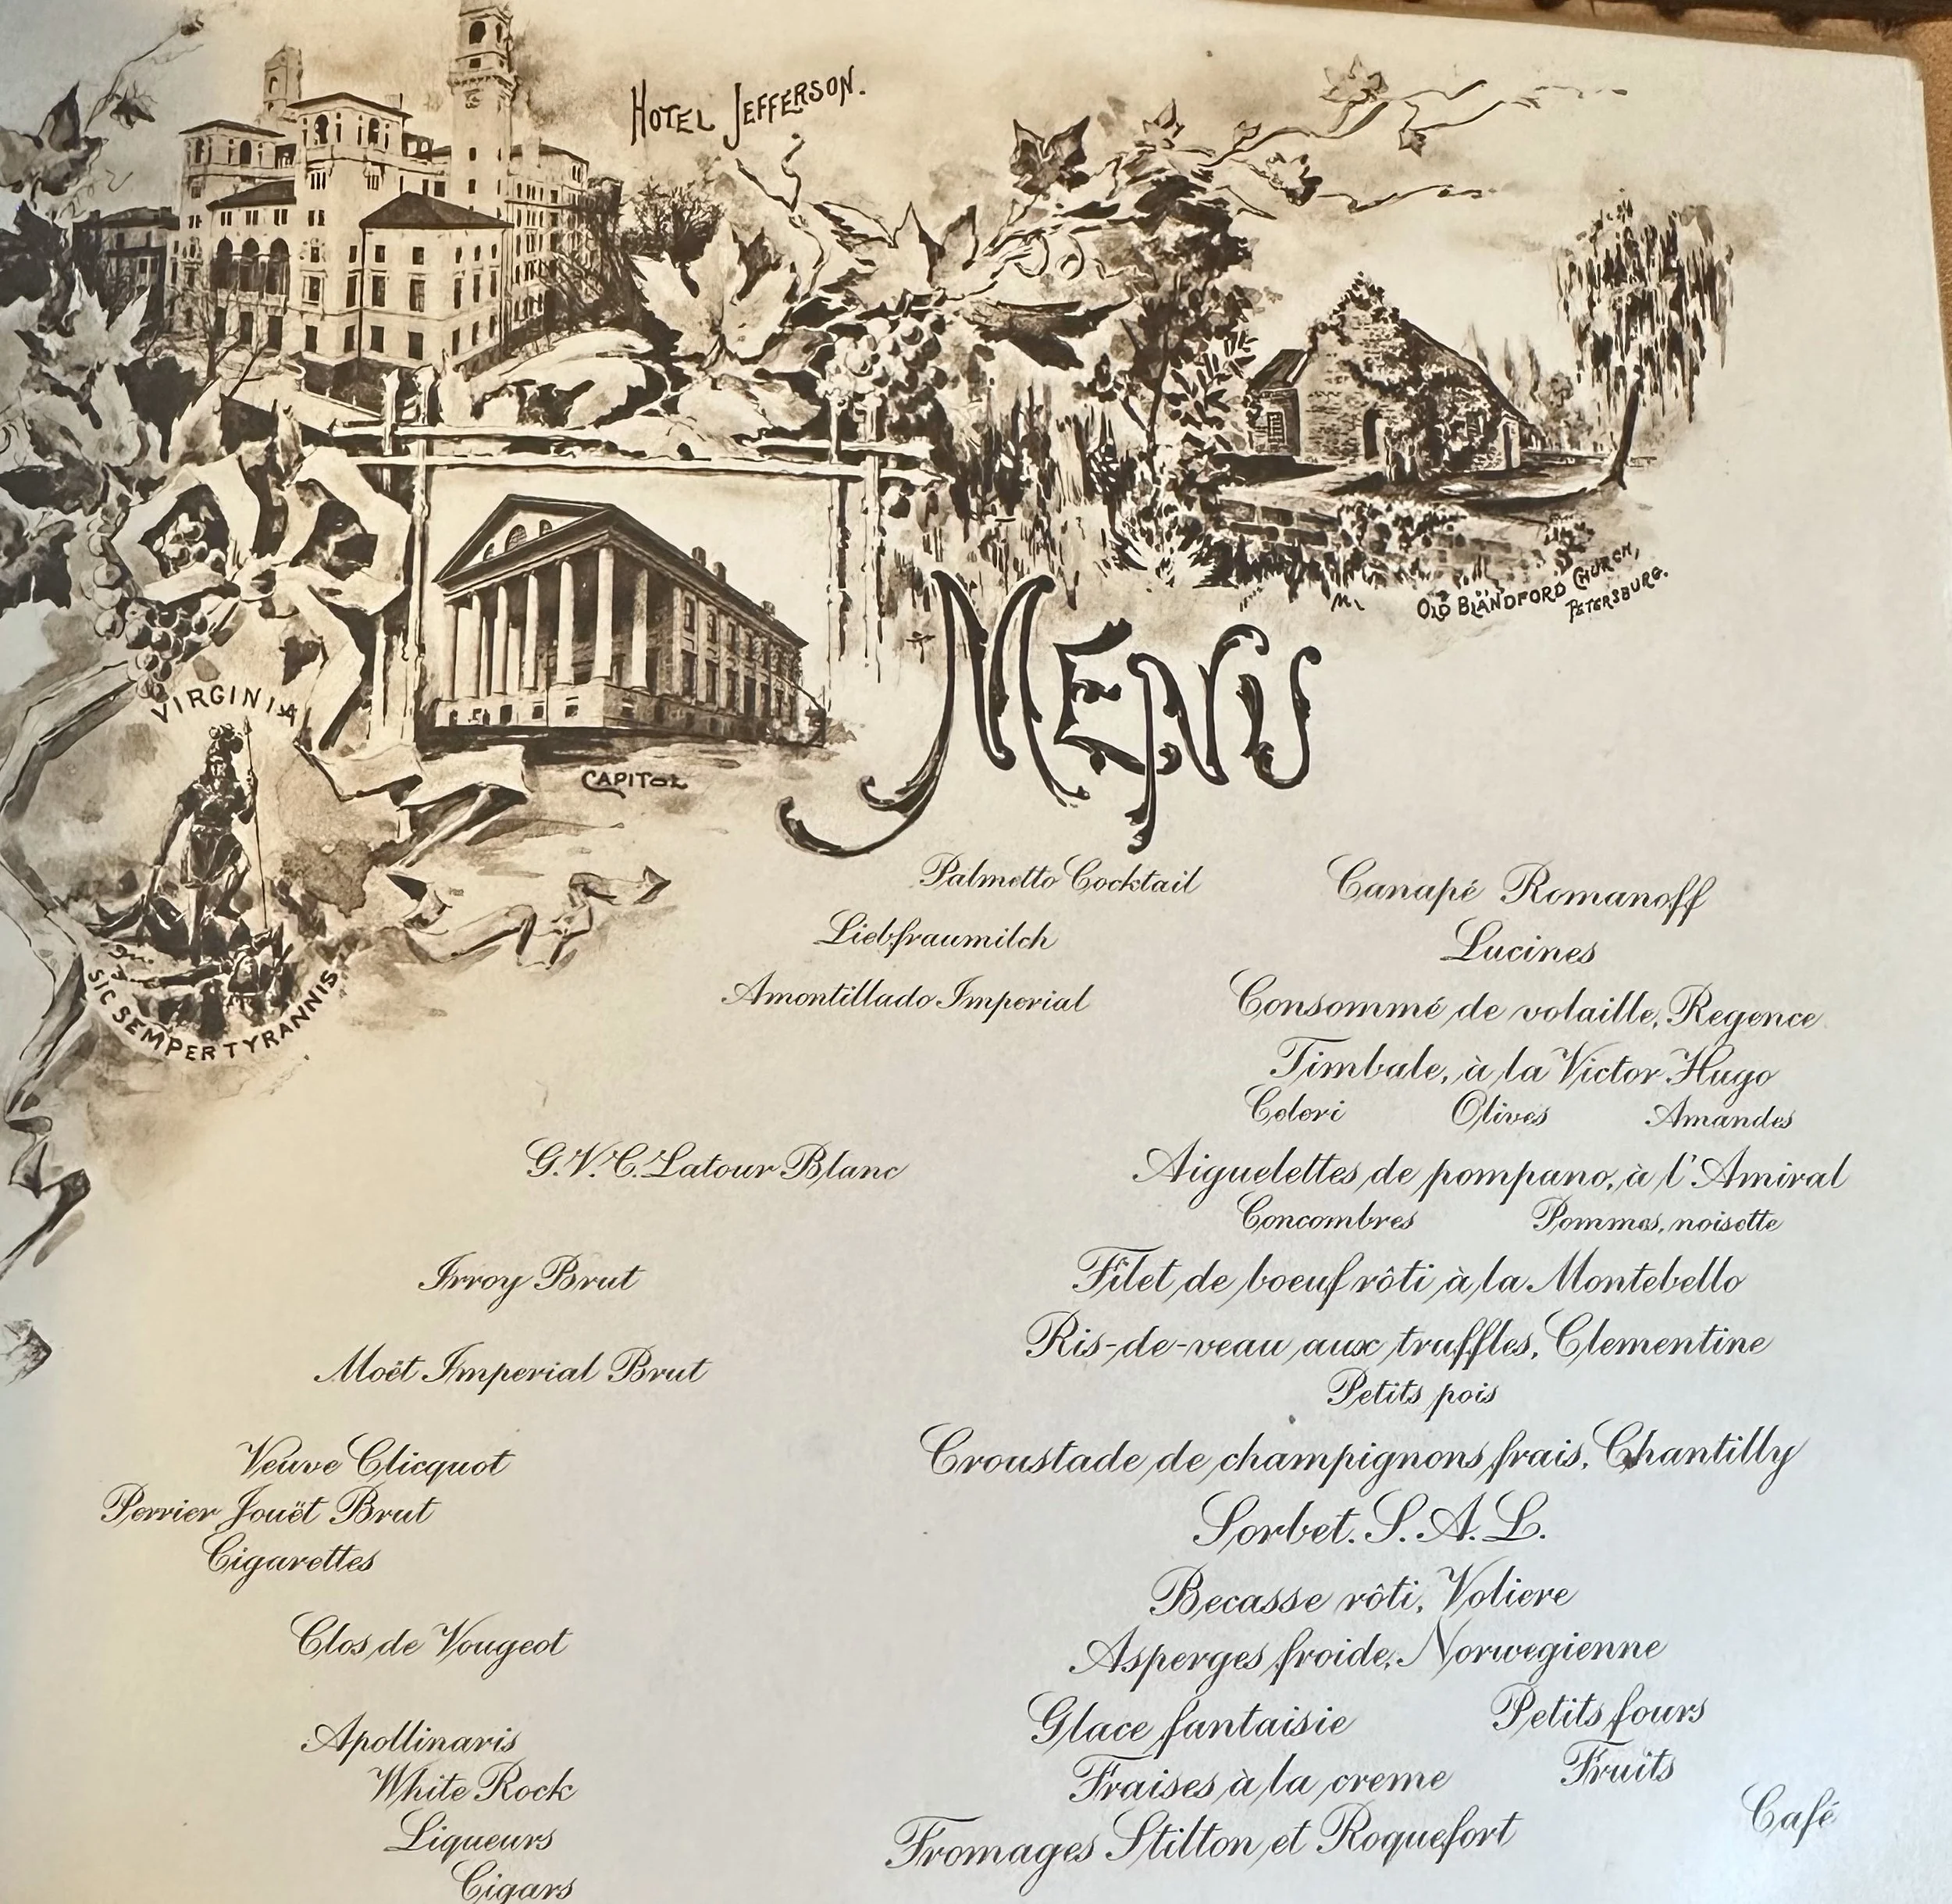 HOTEL JEFFERSON.
OLD BLANDFORD CHURCH,
PETERSBURG.
VIRGINIA
CAPITOL
SIC SEMPER TYRANNIS
MENU
Palmetto Cocktail
Canapé Romanoff
Liebfraumilch
Lucines
Amontillado Imperial
Consommé de volaille, Regence
Timbale, à la Victor Hugo
Celeri Olives Amandes
G. V. C. Latour Blanc
Aiguelettes de pompano, à l'Amiral
Concombres Pommes, noisette
Irroy Brut
Filet de boeuf rôti à la Montebello
Ris-de-veau aux truffles, Clementine
Moët Imperial Brut
Petits pois
Veuve Clicquot
Croustade de champignons frais, Chantilly
Perrier Jouët Brut
Sorbet. S. A. L.
Cigarettes
Becasse rôti, Voliere
Clos de Vougeot
Asperges froide, Norwegienne
Glace fantaisie Petits fours
Apollinaris
White Rock
Fraises à la creme Fruits
Liqueurs
Fromages Stilton et Roquefort
Café
Cigars